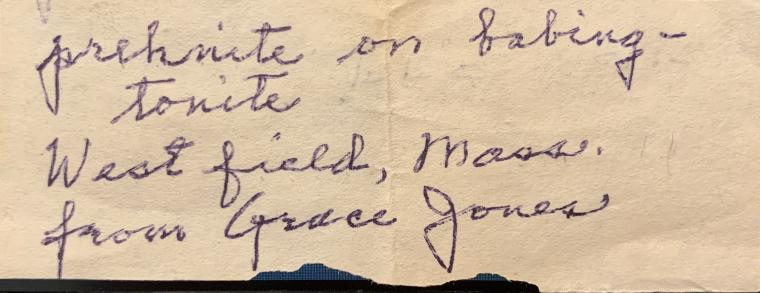 prehnite on babing-
tonite
Westfield, Mass.
from Grace Jones